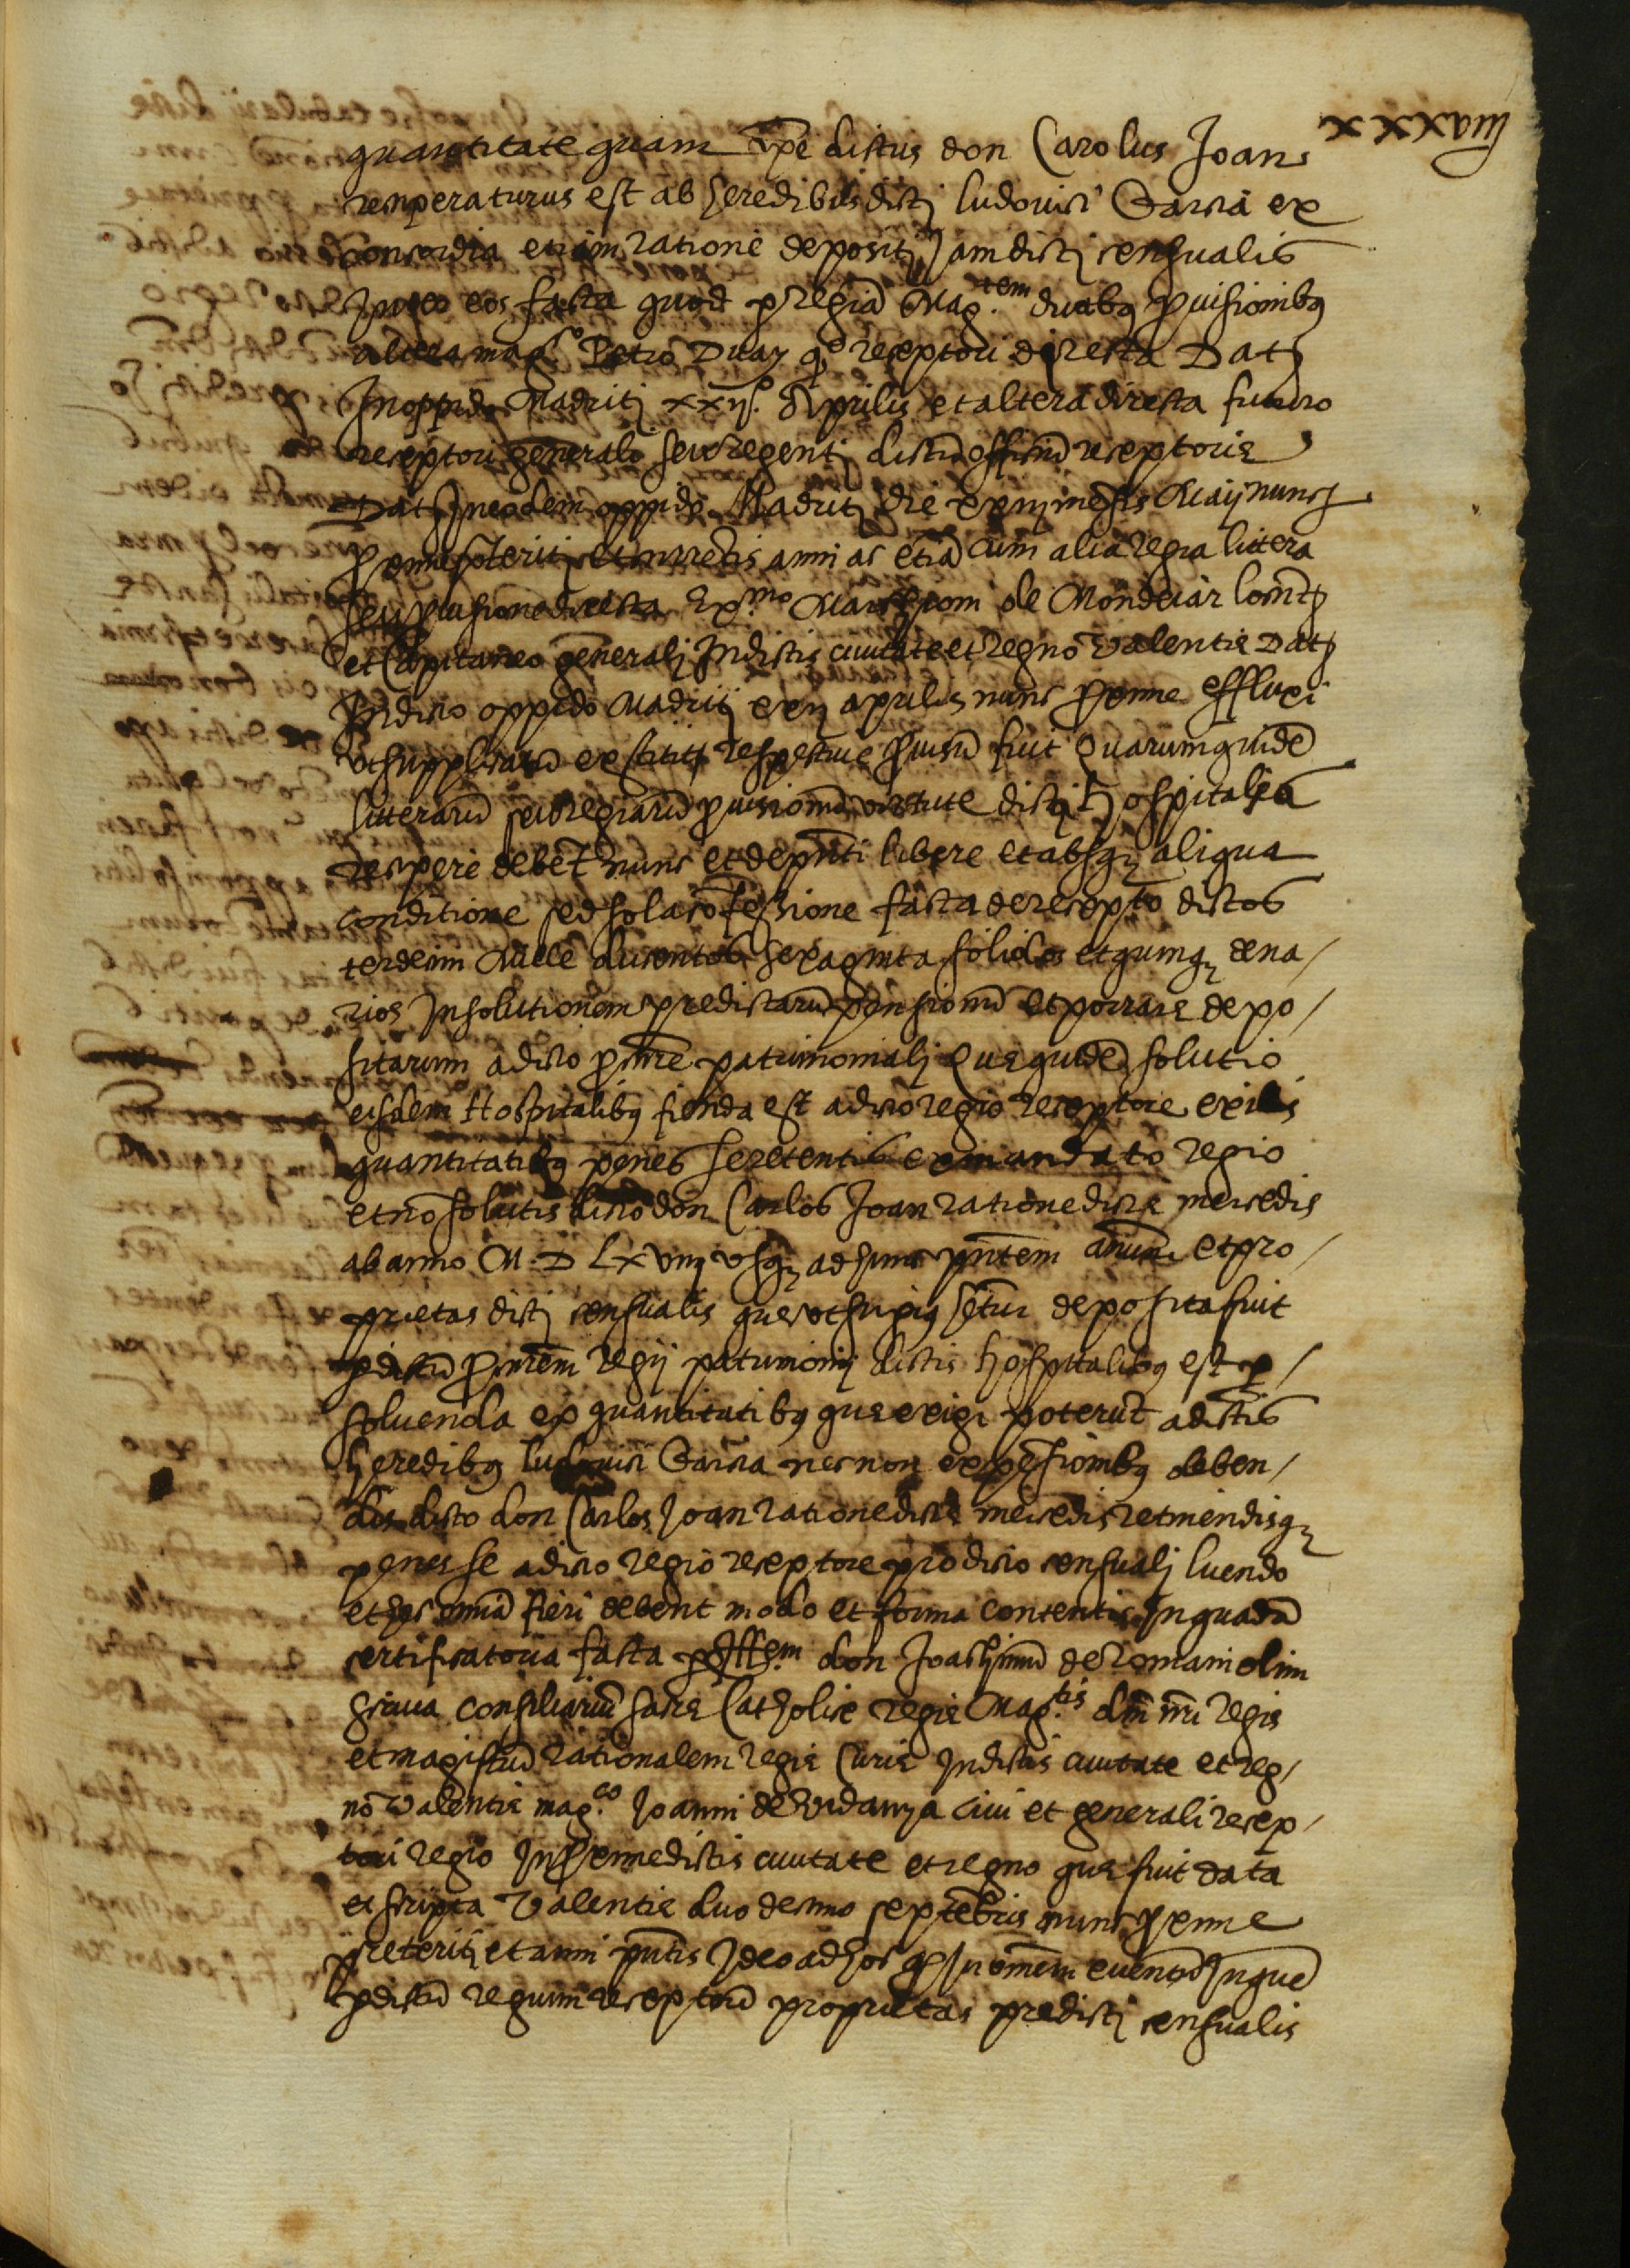 xxxxviiij
quantitate quam spe dictus don Carolus Joan
recuperaturus est ab heredibus dictj ludouici Garcia ex
concordia etiam ratione depositj Jam dictj censualis
Inter eos facta quod p regiã Mag.tem duabus prouisionibus
altera mag.co Petro Duay qo receptori directa Datj
In oppido Madritj xxij.o Aprilis et altera directa futuro
receptori generali seu regentj dictũ officiũ receptorie
Datj In eodem oppido Madritj die mẽsis Maij nunc
proxime preteritj et currẽtis anni ac etiã cum alia regia littera
seu prouisione directa Ex.mo Marchiom de Mondeiar locũtj
et Capitaneo generalj In dictis ciuitate et regno Valentie Datj
In dicto oppido Madritj aprilis nunc proxime effluxi
vt supplicatũ extitit respectiue prouisũ fuit Quarumquidẽ
litterarũ seu regiarũ prouisionũ virtute dictj hospitalia
recipere debẽt nunc et de pñti libere et absq aliqua
conditione sed sola cõfessione facta de recepto dictos
terdecim Mille ducentos sexaginta solidos et quinq dena/
rios In solutionem predictarũ pensionũ et porrate depo/
sitarum a dicto prore patrimonialj Que quidẽ solutio
eisdem Hospitalibus fienda est a dicto regio receptore ex illis
quantitatibus penes se retentis ex mandato regio
et nõ solutis dicto don Carlos Joan ratione dicte mercedis
ab anno M.D Lxviiij vsq ad hunc pñtem annum et pro/
prietas dictj censualis que vt supius fetur deposita fuit
p dictũ procurem regij patrimonij dictis hospitalibus est p/
soluenda ex quantitatibus que exigi poterũt a dictis
heredibus ludouici Garcia necnon ex pẽsionibus deben/
dis dicto don Carlos Joan ratione dicte mercedis retinendisq
penes se a dicto regio receptore pro dicto censualj luendo
et hec omnia fieri debent modo et forma contentis In quadã
certificatoria facta p Illsem don Joachimũ de Romani olim
Scriua consiliariũ sacre Catholice regie Mag.tis dñi nri regis
et magistrũ rationalem regie Curie In dictis ciuitate et reg/
nõ Valentie mag.co Joanni de Vidanya ciui et generali recep/
tori regio In proxime dictis ciuitate et regno que fuit data
et scripta Valentie duodecimo septẽbris nunc proxime
preteritj et anni pñtis Ideo ad hoc qp In omnem euentũ In quẽ
p dictũ regium receptorũ proprietas predictj censualis